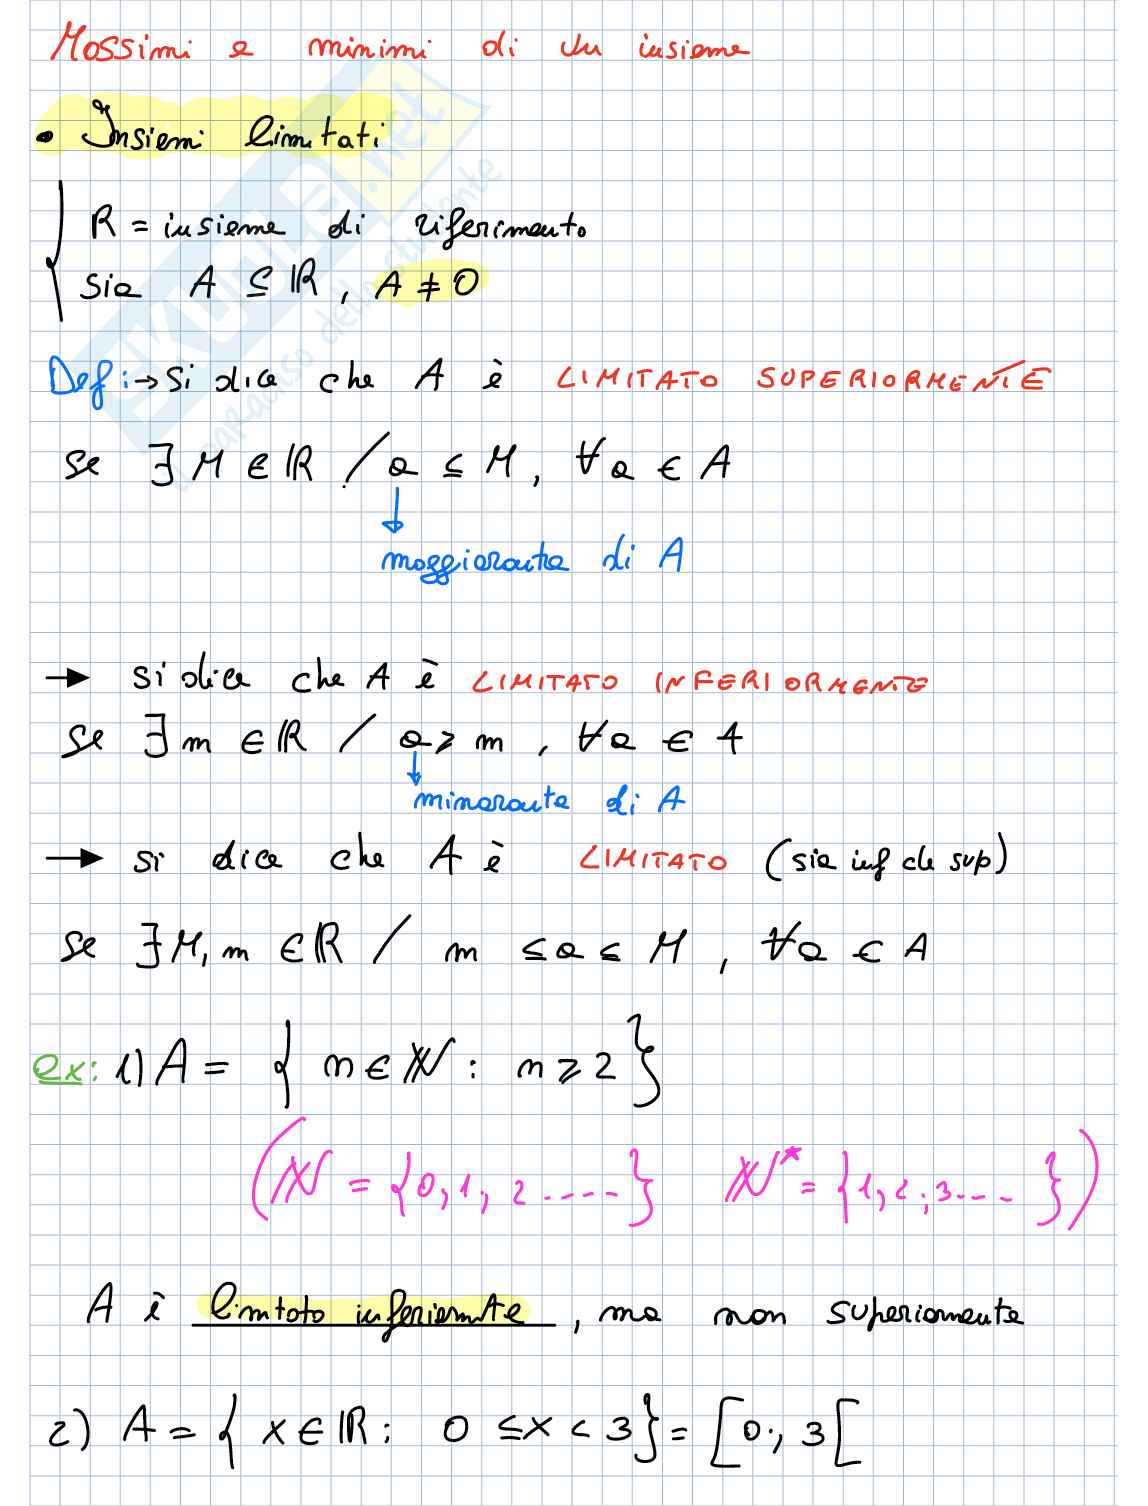 Massimi e minimi di un insieme
• Insiemi limitati
R = insieme di riferimento
sia A ⊆ ℝ, A ≠ 0
Def: → si dice che A è LIMITATO SUPERIORMENTE
se ∃ M ∈ ℝ / a ≤ M, ∀a ∈ A
↓
maggiorante di A
→ si dice che A è LIMITATO INFERIORMENTE
se ∃ m ∈ ℝ / a ⩾ m, ∀a ∈ A
↓
minorante di A
→ si dice che A è LIMITATO (sia inf che sup)
se ∃ M, m ∈ ℝ / m ≤ a ≤ M, ∀a ∈ A
ex: 1) A = { n ∈ ℕ : n ⩾ 2 }
(ℕ = {0, 1, 2 ....} ℕ* = {1, 2, 3... })
A è limtato inferiormte, ma non superiormente
2) A = { x ∈ ℝ : 0 ≤ x < 3 } = [0; 3[
SKUOLA.net
il paradiso dello studente